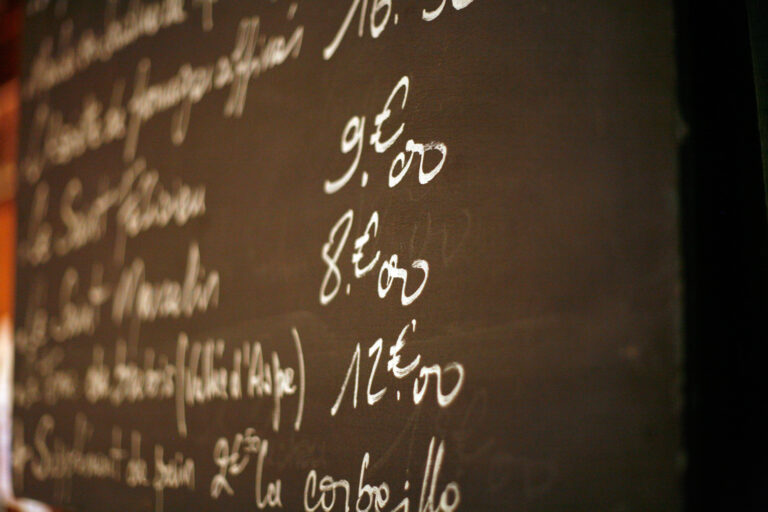 L'assiette de fromages affinés 16.50
Le Saint Félicien 9.€00
Le Saint Marcelin 8.€00
de brebis (Vallée d'Aspe) 12.€00
+ Supplément de pain 2€50 la corbeille